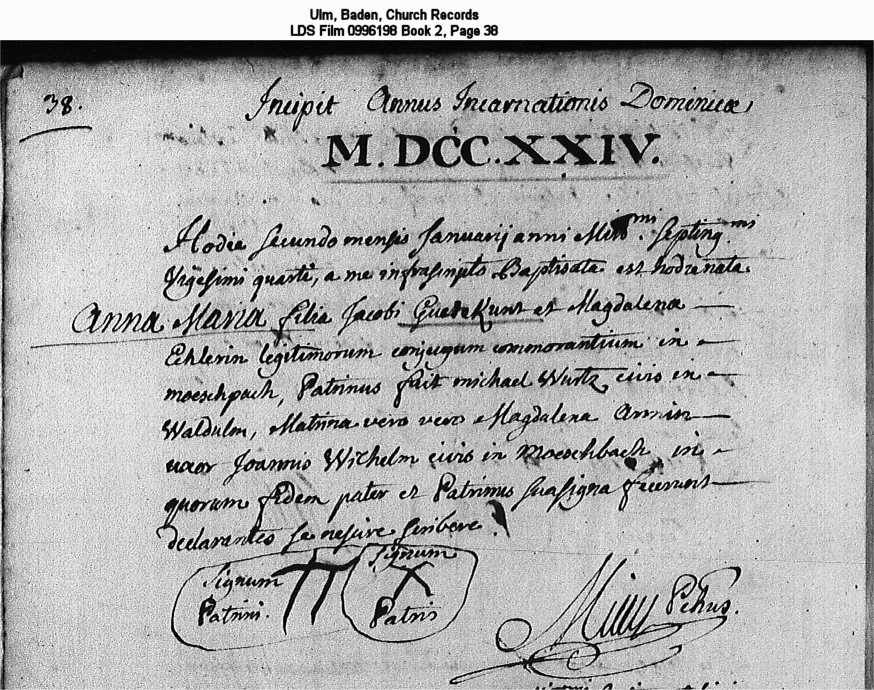 Ulm, Baden, Church Records
LDS Film 0996198 Book 2, Page 38
38.
Incipit Annus Incarnationis Dominicæ,
M. DCC. XXIV.
Hodie secundo mensis Januarij anni septing
Vigesimi quarti, a me infrascripto Baptisata est hodie nata
Anna Maria filia Jacobi Guetekunst et Magdalena
Echlerin legitimorum conjugum commorantium in
moeschpach, Patrinus fuit michael Wurtz civis in
Waldulm, Matrina vero vero Magdalena Annin
uxor Joannis Wilhelm civis in moeschbach, in
quorum fidem pater et Patrinus sua signa fecerunt
declarantes se nescire scribere
Signum
Patrini.
Signum
Patris